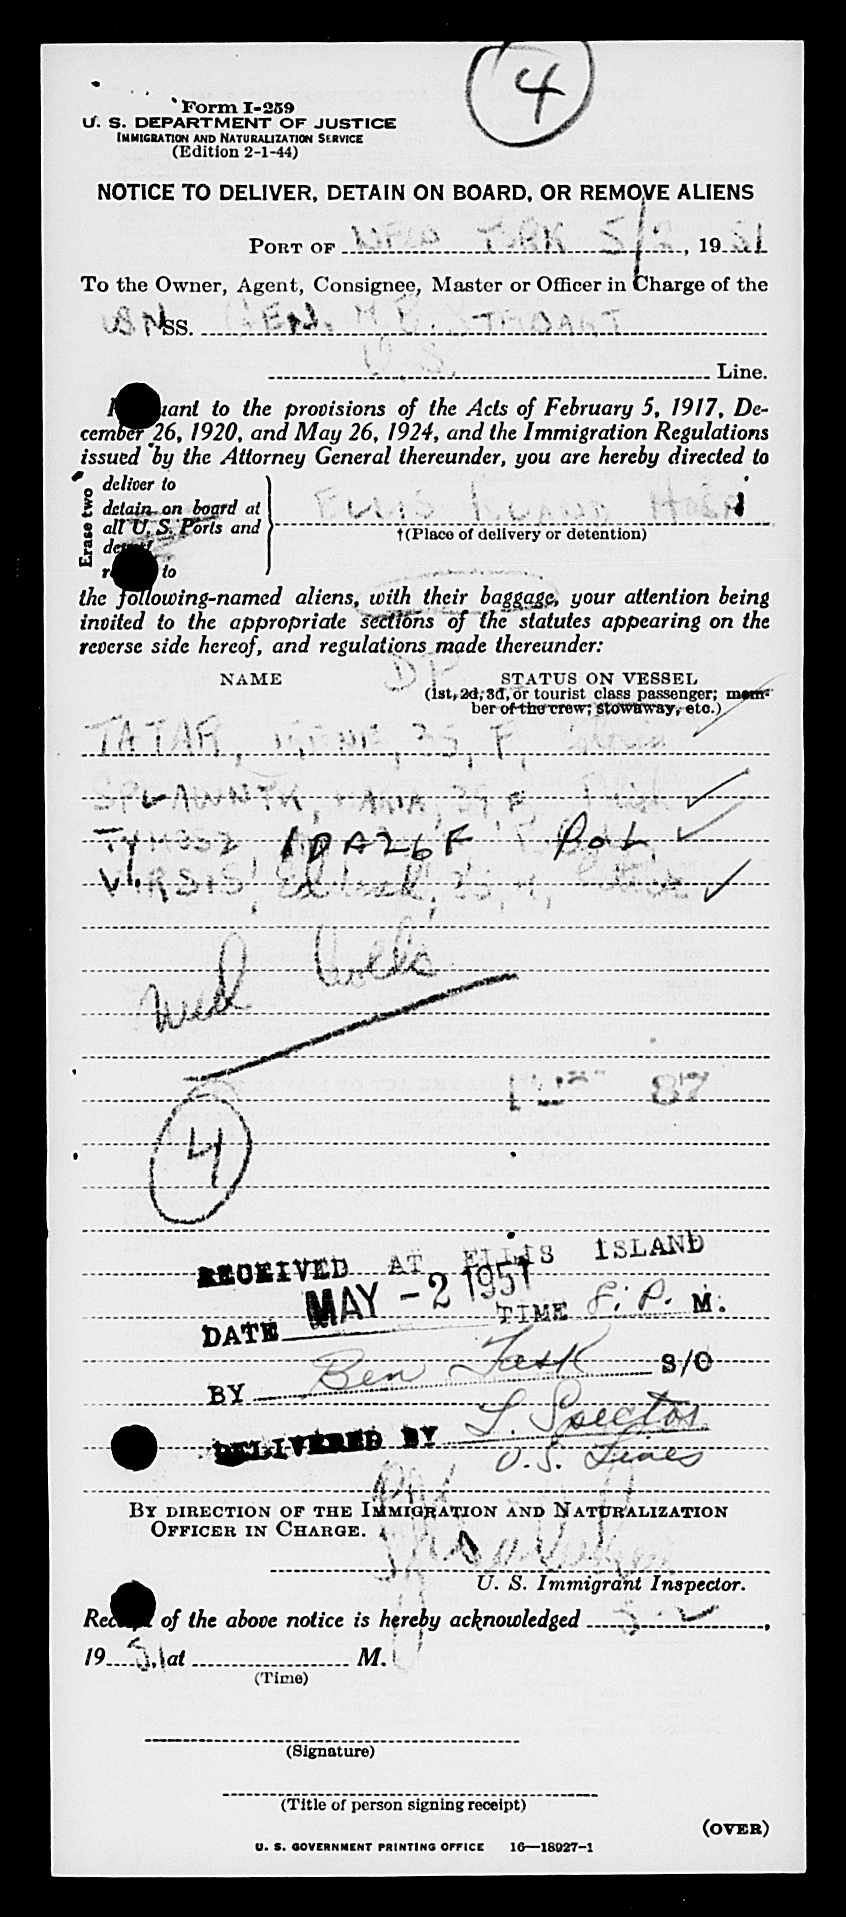 4
Form I-259
U. S. DEPARTMENT OF JUSTICE
IMMIGRATION AND NATURALIZATION SERVICE
(Edition 2-1-44)
NOTICE TO DELIVER, DETAIN ON BOARD, OR REMOVE ALIENS
PORT OF NEW YORK 5/2, 1951
To the Owner, Agent, Consignee, Master or Officer in Charge of the
SS. GEN. M. B. STEWART
U.S. Line.
to the provisions of the Acts of February 5, 1917, De-
cember 26, 1920, and May 26, 1924, and the Immigration Regulations
issued by the Attorney General thereunder, you are hereby directed to
Erase two
deliver to
detain on board at
all U. S. Ports and
to
ELLIS ISLAND
†(Place of delivery or detention)
the following-named aliens, with their baggage, your attention being
invited to the appropriate sections of the statutes appearing on the
reverse side hereof, and regulations made thereunder:
DP
NAME STATUS ON VESSEL
(1st, 2d, 3d, or tourist class passenger; mem-
ber of the crew; stowaway, etc.)
TATAR, IRENE, 35, F,
MARIA, 39 F Polish
IDA 26 F POL
Med
4
87
RECEIVED AT ELLIS ISLAND
DATE MAY -2 1951 TIME 8: P. M.
BY Ben Task S/O
DELIVERED BY L. Spector
U.S. Lines
BY DIRECTION OF THE IMMIGRATION AND NATURALIZATION
OFFICER IN CHARGE.
U. S. Immigrant Inspector.
Receipt of the above notice is hereby acknowledged 5-2,
1951, at M.
(Time)
(Signature)
(Title of person signing receipt)
(OVER)
U. S. GOVERNMENT PRINTING OFFICE 16—18927-1